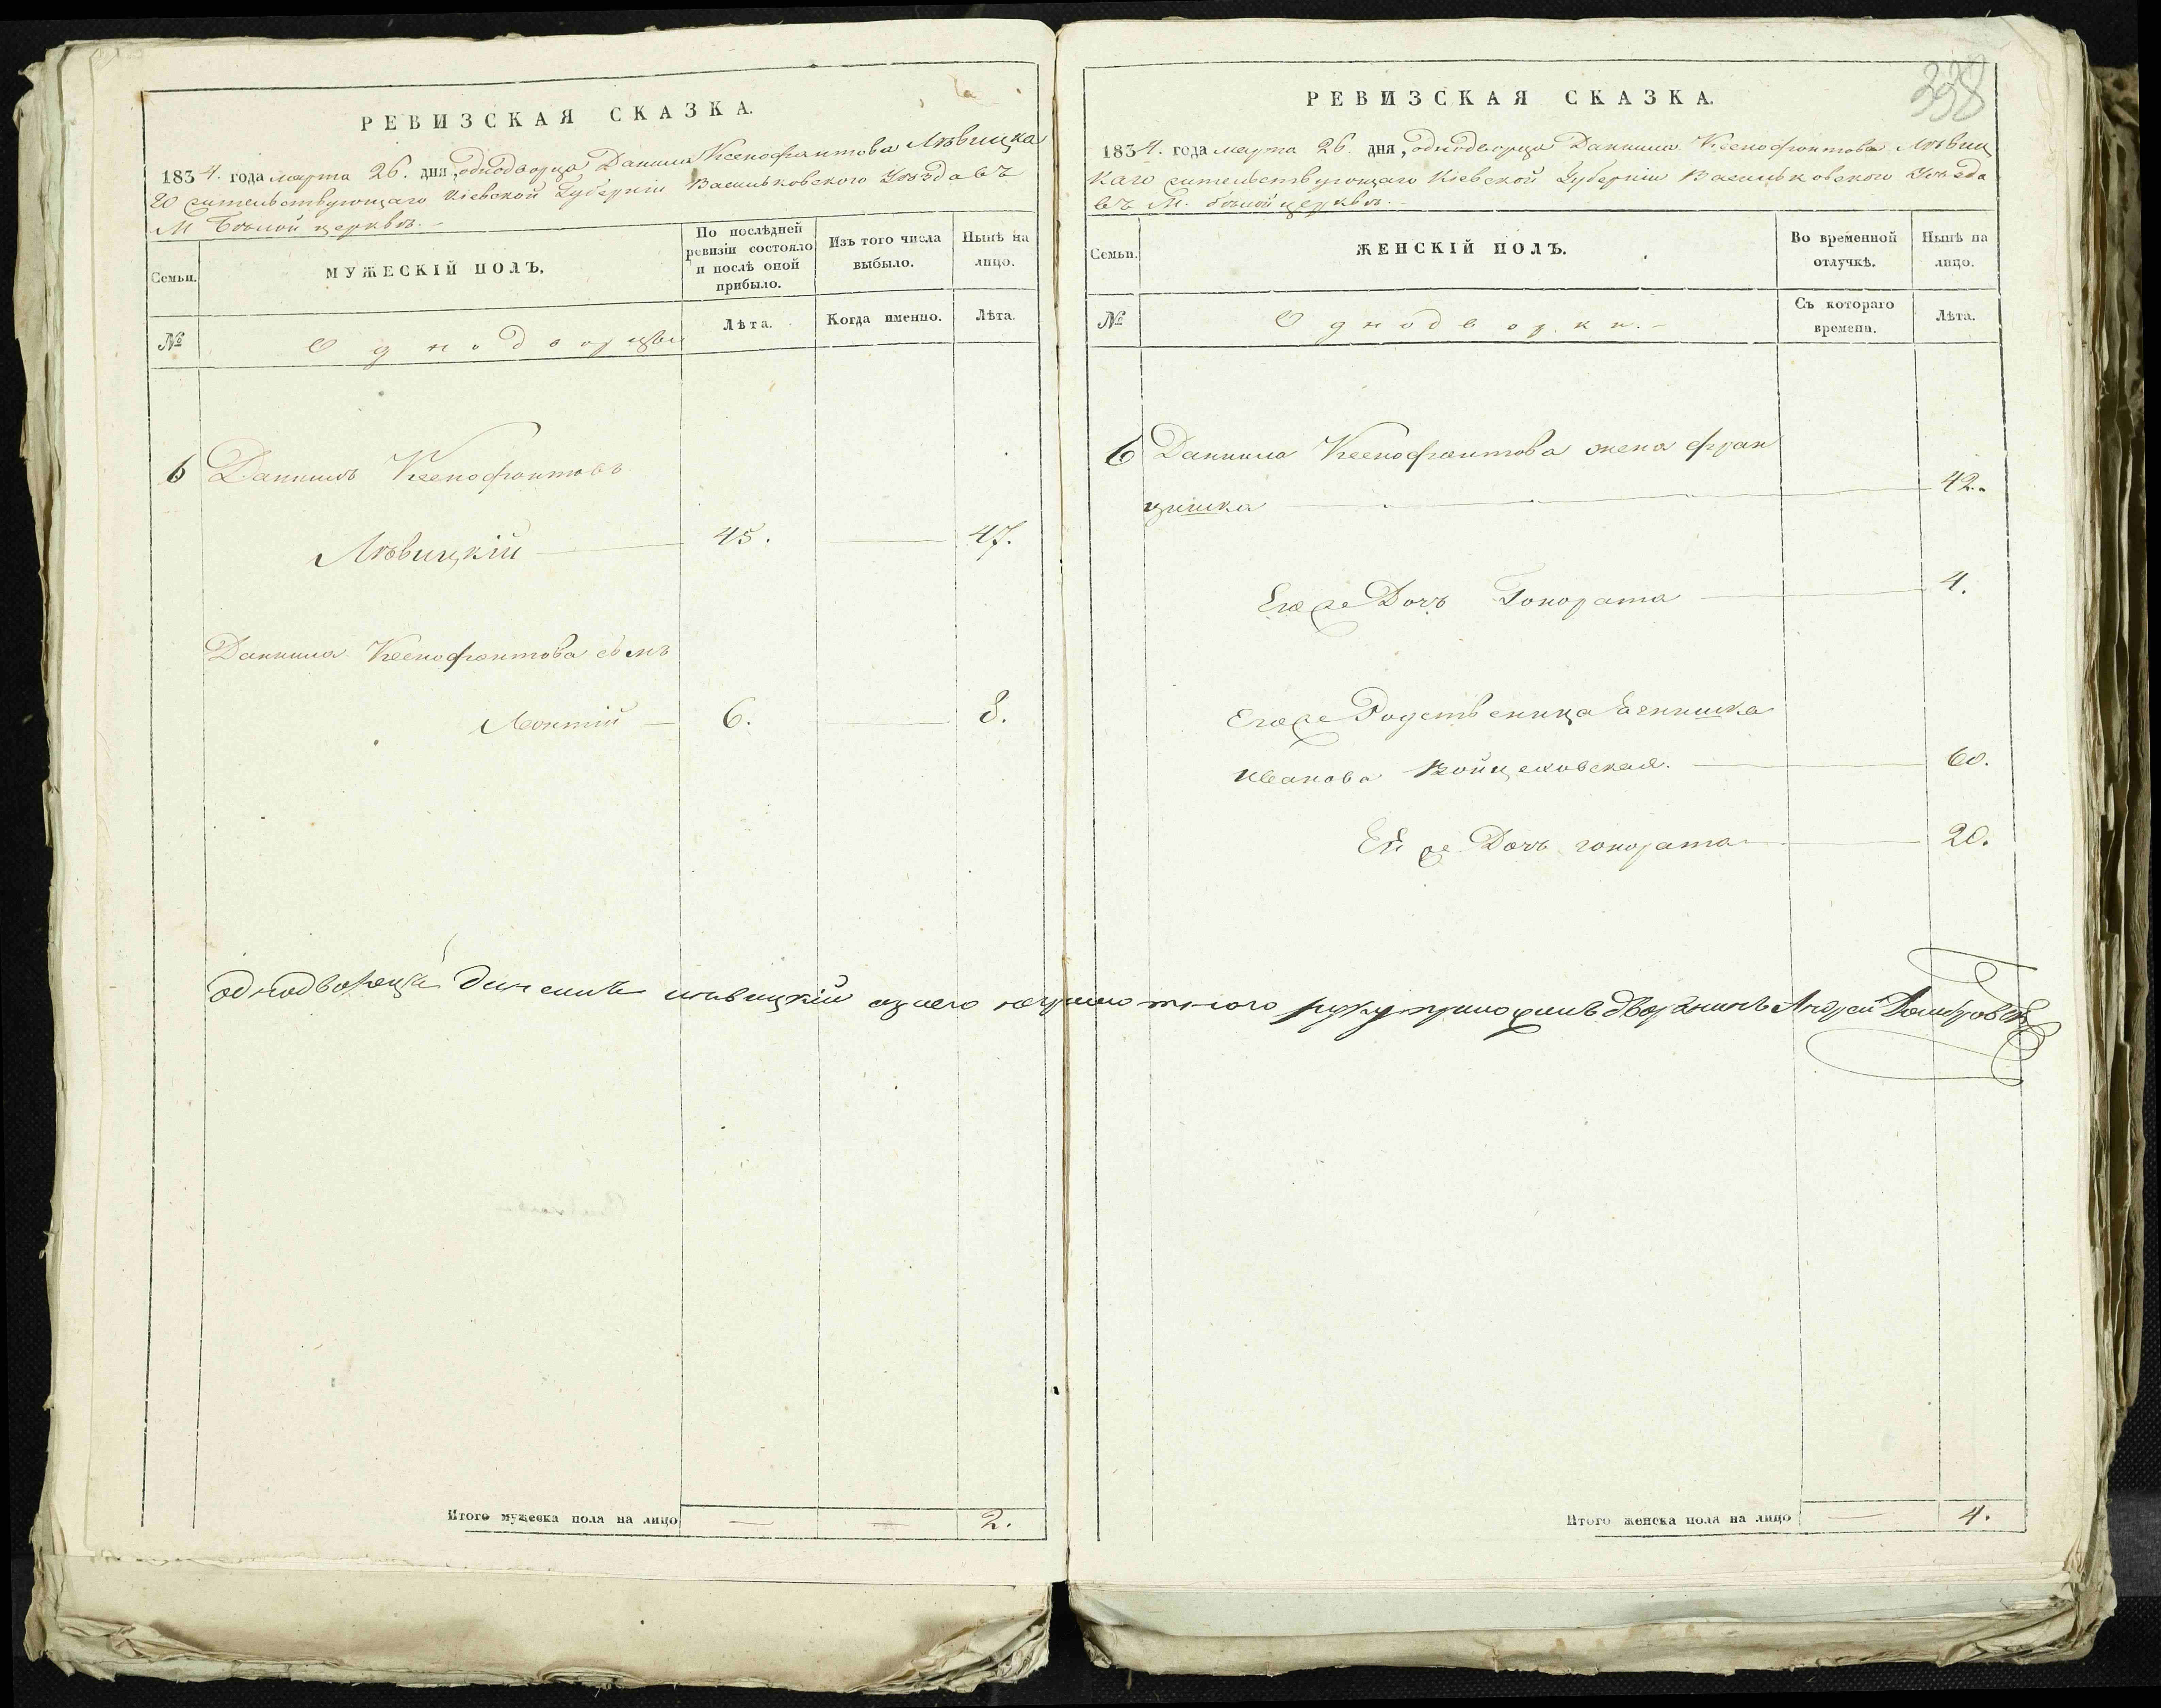 РЕВИЗСКАЯ СКАЗКА.
1834. года марта 26. дня, однодворца Данила Ксенофонтова Лѣвицка
го жительствующаго Кіевской Губерніи Васильковского Уѣзда въ
М Бѣлой церквѣ.
Семьи.
МУЖЕСКІЙ ПОЛЪ.
По послѣдней ревизіи состояло и послѣ оной прибыло.
Изъ того числа выбыло.
Нынѣ на лицо.
№
Однодворцы
Лѣта.
Когда именно.
Лѣта.
6 Даниилъ Ксенофонтовъ
Лѣвицкій 45. 47.
Даниила Ксенофонтова сынъ
Леонтій 6. 8.
Итого мужеска пола на лицо — — 2.
338
РЕВИЗСКАЯ СКАЗКА.
1834. года марта 26. дня, однодворца Даниила Ксенофонтова Лѣвиц
каго жительствующаго Кіевской Губерніи Васильковского Уѣзда
въ М. бѣлой церквѣ.
Семьи.
ЖЕНСКІЙ ПОЛЪ.
Во временной отлучкѣ.
Нынѣ на лицо.
№
Однодворки.
Съ котораго времени.
Лѣта.
6 Даниила Ксенофонтова жена фран
цишка 42.
Его же Дочъ Гонората 4.
Егоже Родственица Агнишка
Иванова Войцеховская. 60.
Ей же Дочъ гонората 20.
однодворецъ лѣвицкій анеего неграмотного руку приложилъ дворянинъ Андрей Домбровскій
Итого женска пола на лицо — 4.